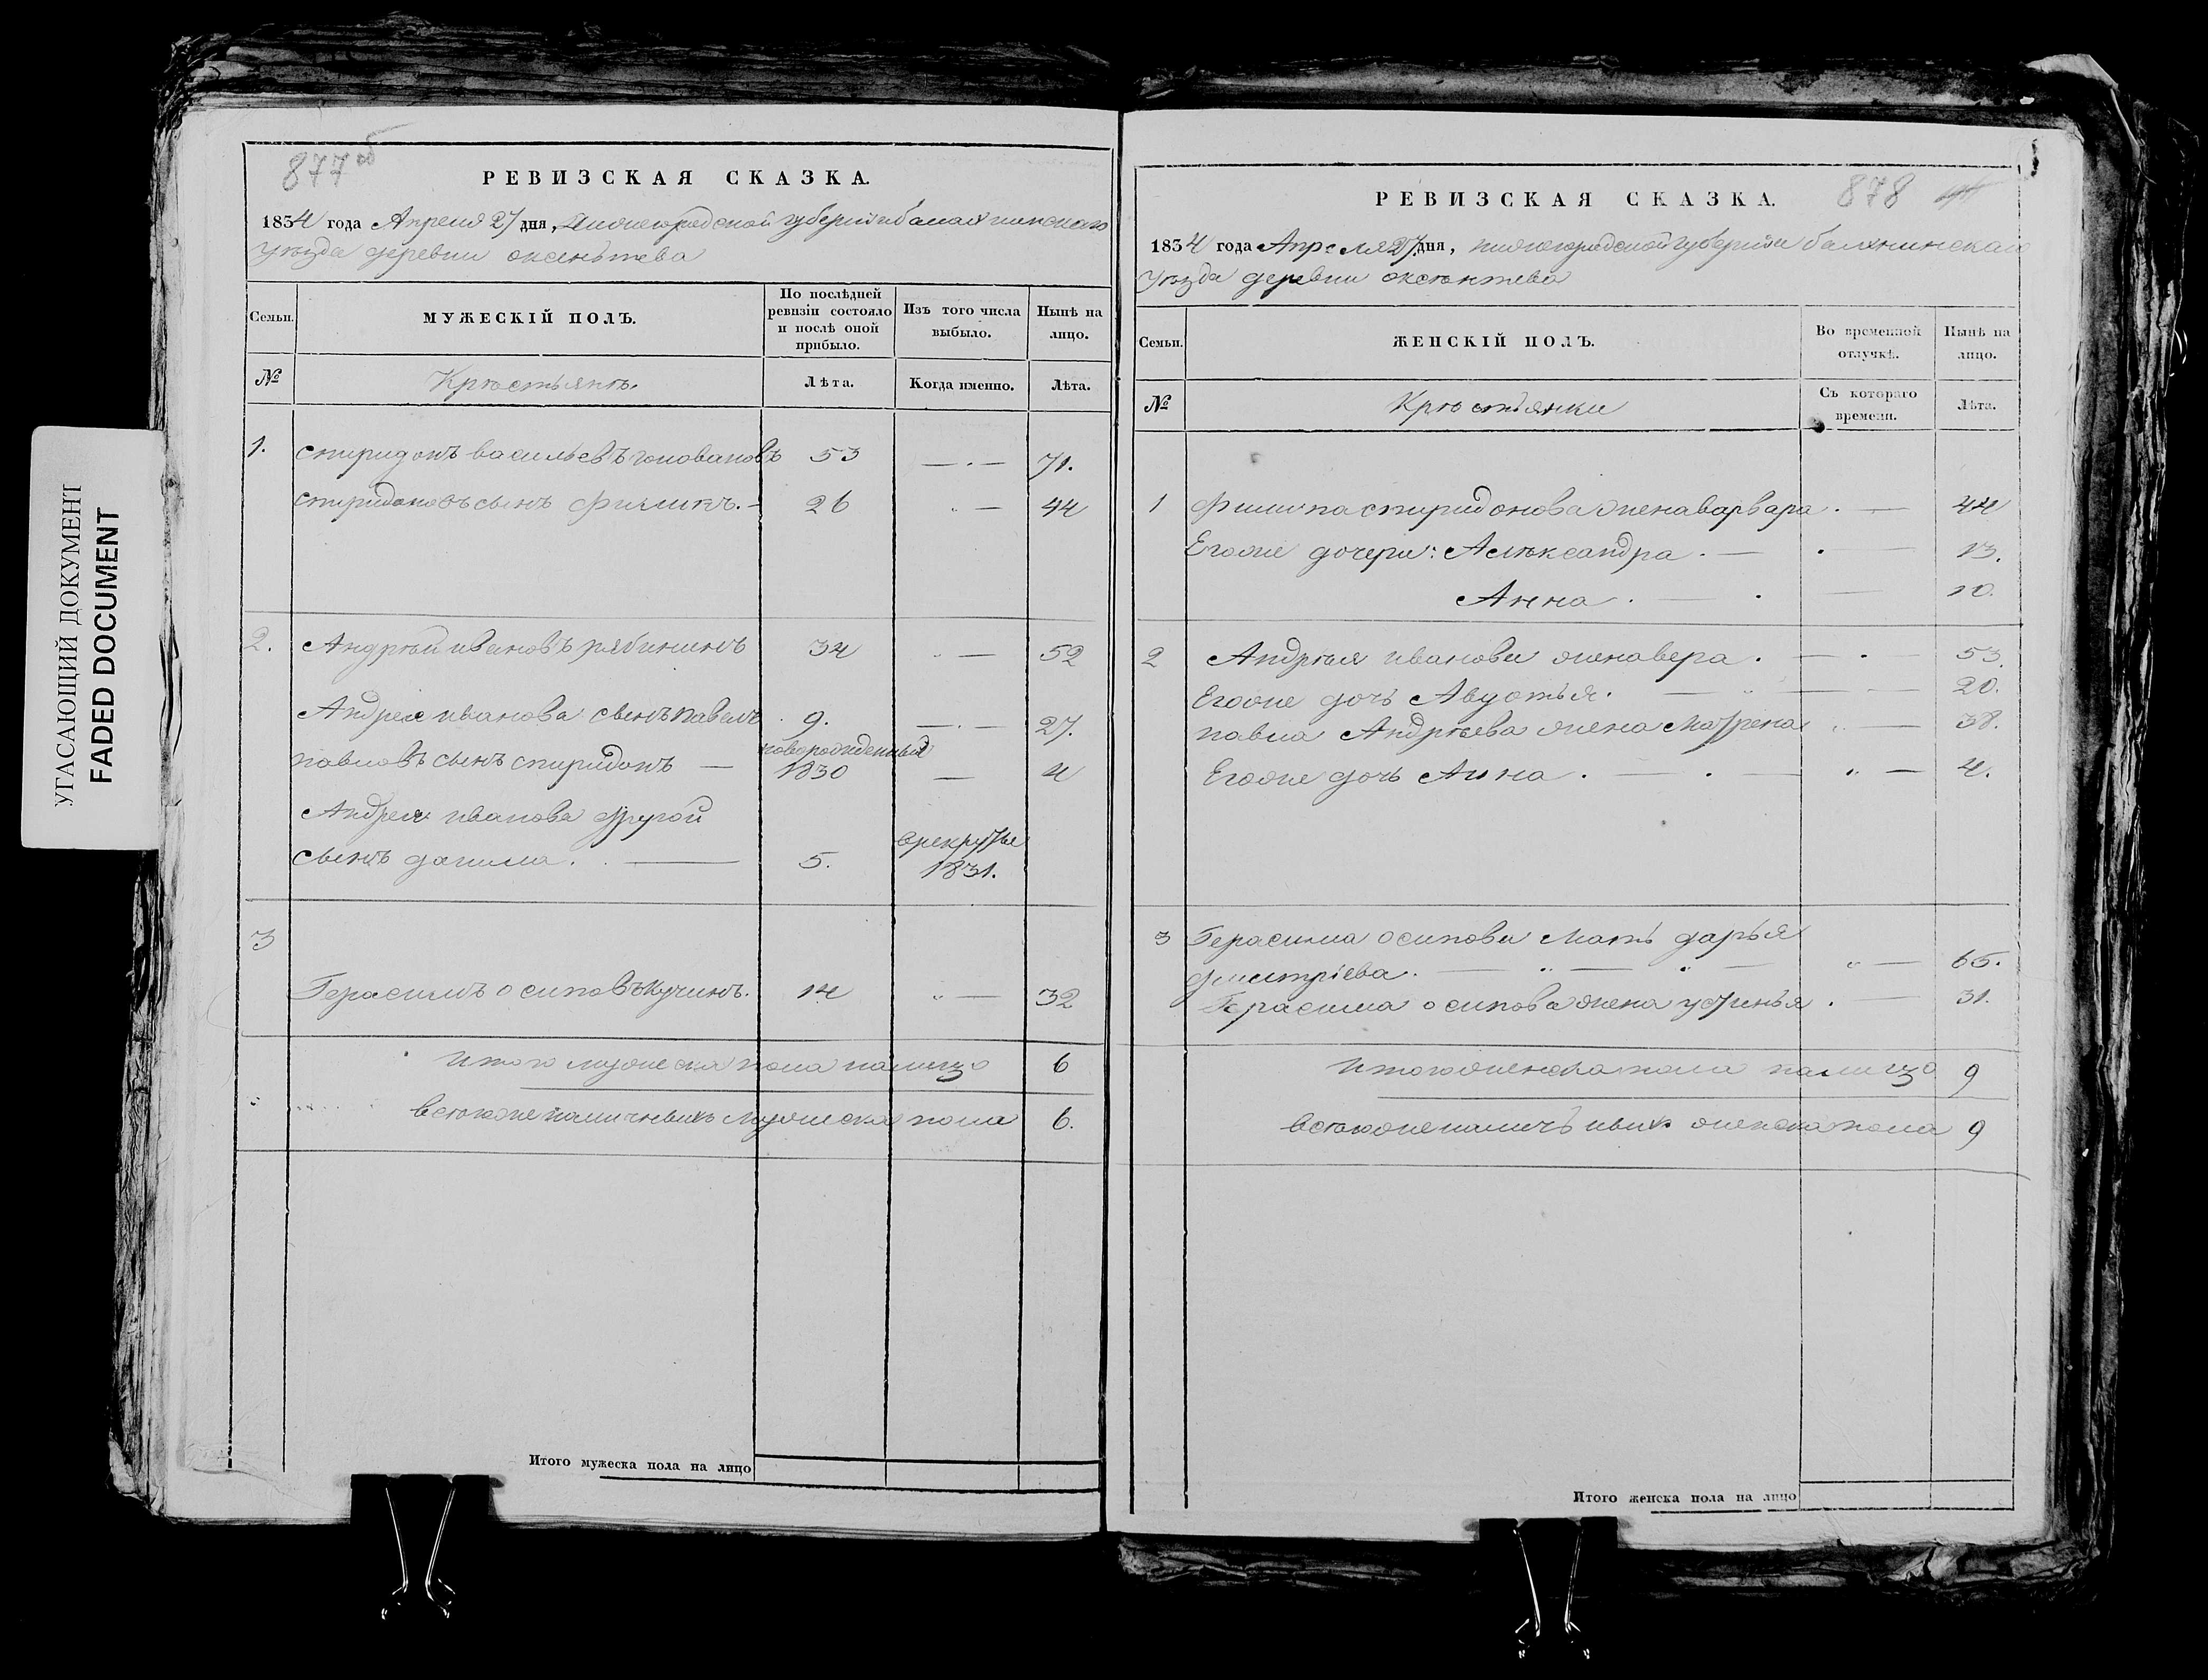 УГАСАЮЩИЙ ДОКУМЕНТ
FADED DOCUMENT
877об
РЕВИЗСКАЯ СКАЗКА.
1834 года Апреля 27 дня, нижегородской губернии балахнинскаго
уѣзда деревни оксеньтева
Семьи.
МУЖЕСКІЙ ПОЛЪ.
По послѣдней ревизіи состояло и послѣ оной прибыло.
Изъ того числа выбыло.
Нынѣ на лицо.
№
Крѣстьянѣ.
Лѣта.
Когда именно.
Лѣта.
1. спиридонъ васильевъ головановъ 53 71.
спиридоновъ сынъ филипъ. 26 44
2. Андрѣй ивановъ рябининъ 34 52
Андрея иванова сынъ павелъ 9. 27.
павловъ сынъ спиридонъ — новорожденный 1830 — 4
Андрея иванова другой
сынъ данила. 5. врекруты 1831.
3
Герасимъ осиповъ кучинъ. 14 32
итого мужеска пола налицо 6
всегоже наличныхъ мужеска пола 6.
Итого мужеска пола на лицо
РЕВИЗСКАЯ СКАЗКА.
878
1834 года Апреля 27 дня, нижегородской губернии балхнинскаго
уѣзда деревни оксѣнтева
Семьи.
ЖЕНСКІЙ ПОЛЪ.
Во временной отлучкѣ.
Нынѣ на лицо.
№
Крѣстьянки
Съ котораго времени.
Лѣта.
1 филипа спиридонова жена варвара 44
Егоже дочери: Алѣксандра 13.
Анна 10.
2 Андрѣя иванова жена вера 53.
Егоже дочь Авдотья. 20.
павла Андрѣева жена Матрена 38.
Егоже дочь Анна 4.
3 Герасима осипова мать дарья
дмитріева. 65.
Герасима осипова жена устинья 31.
итого женска пола налицо 9
всегоже наличъныхъ женска пола 9
Итого женска пола на лицо